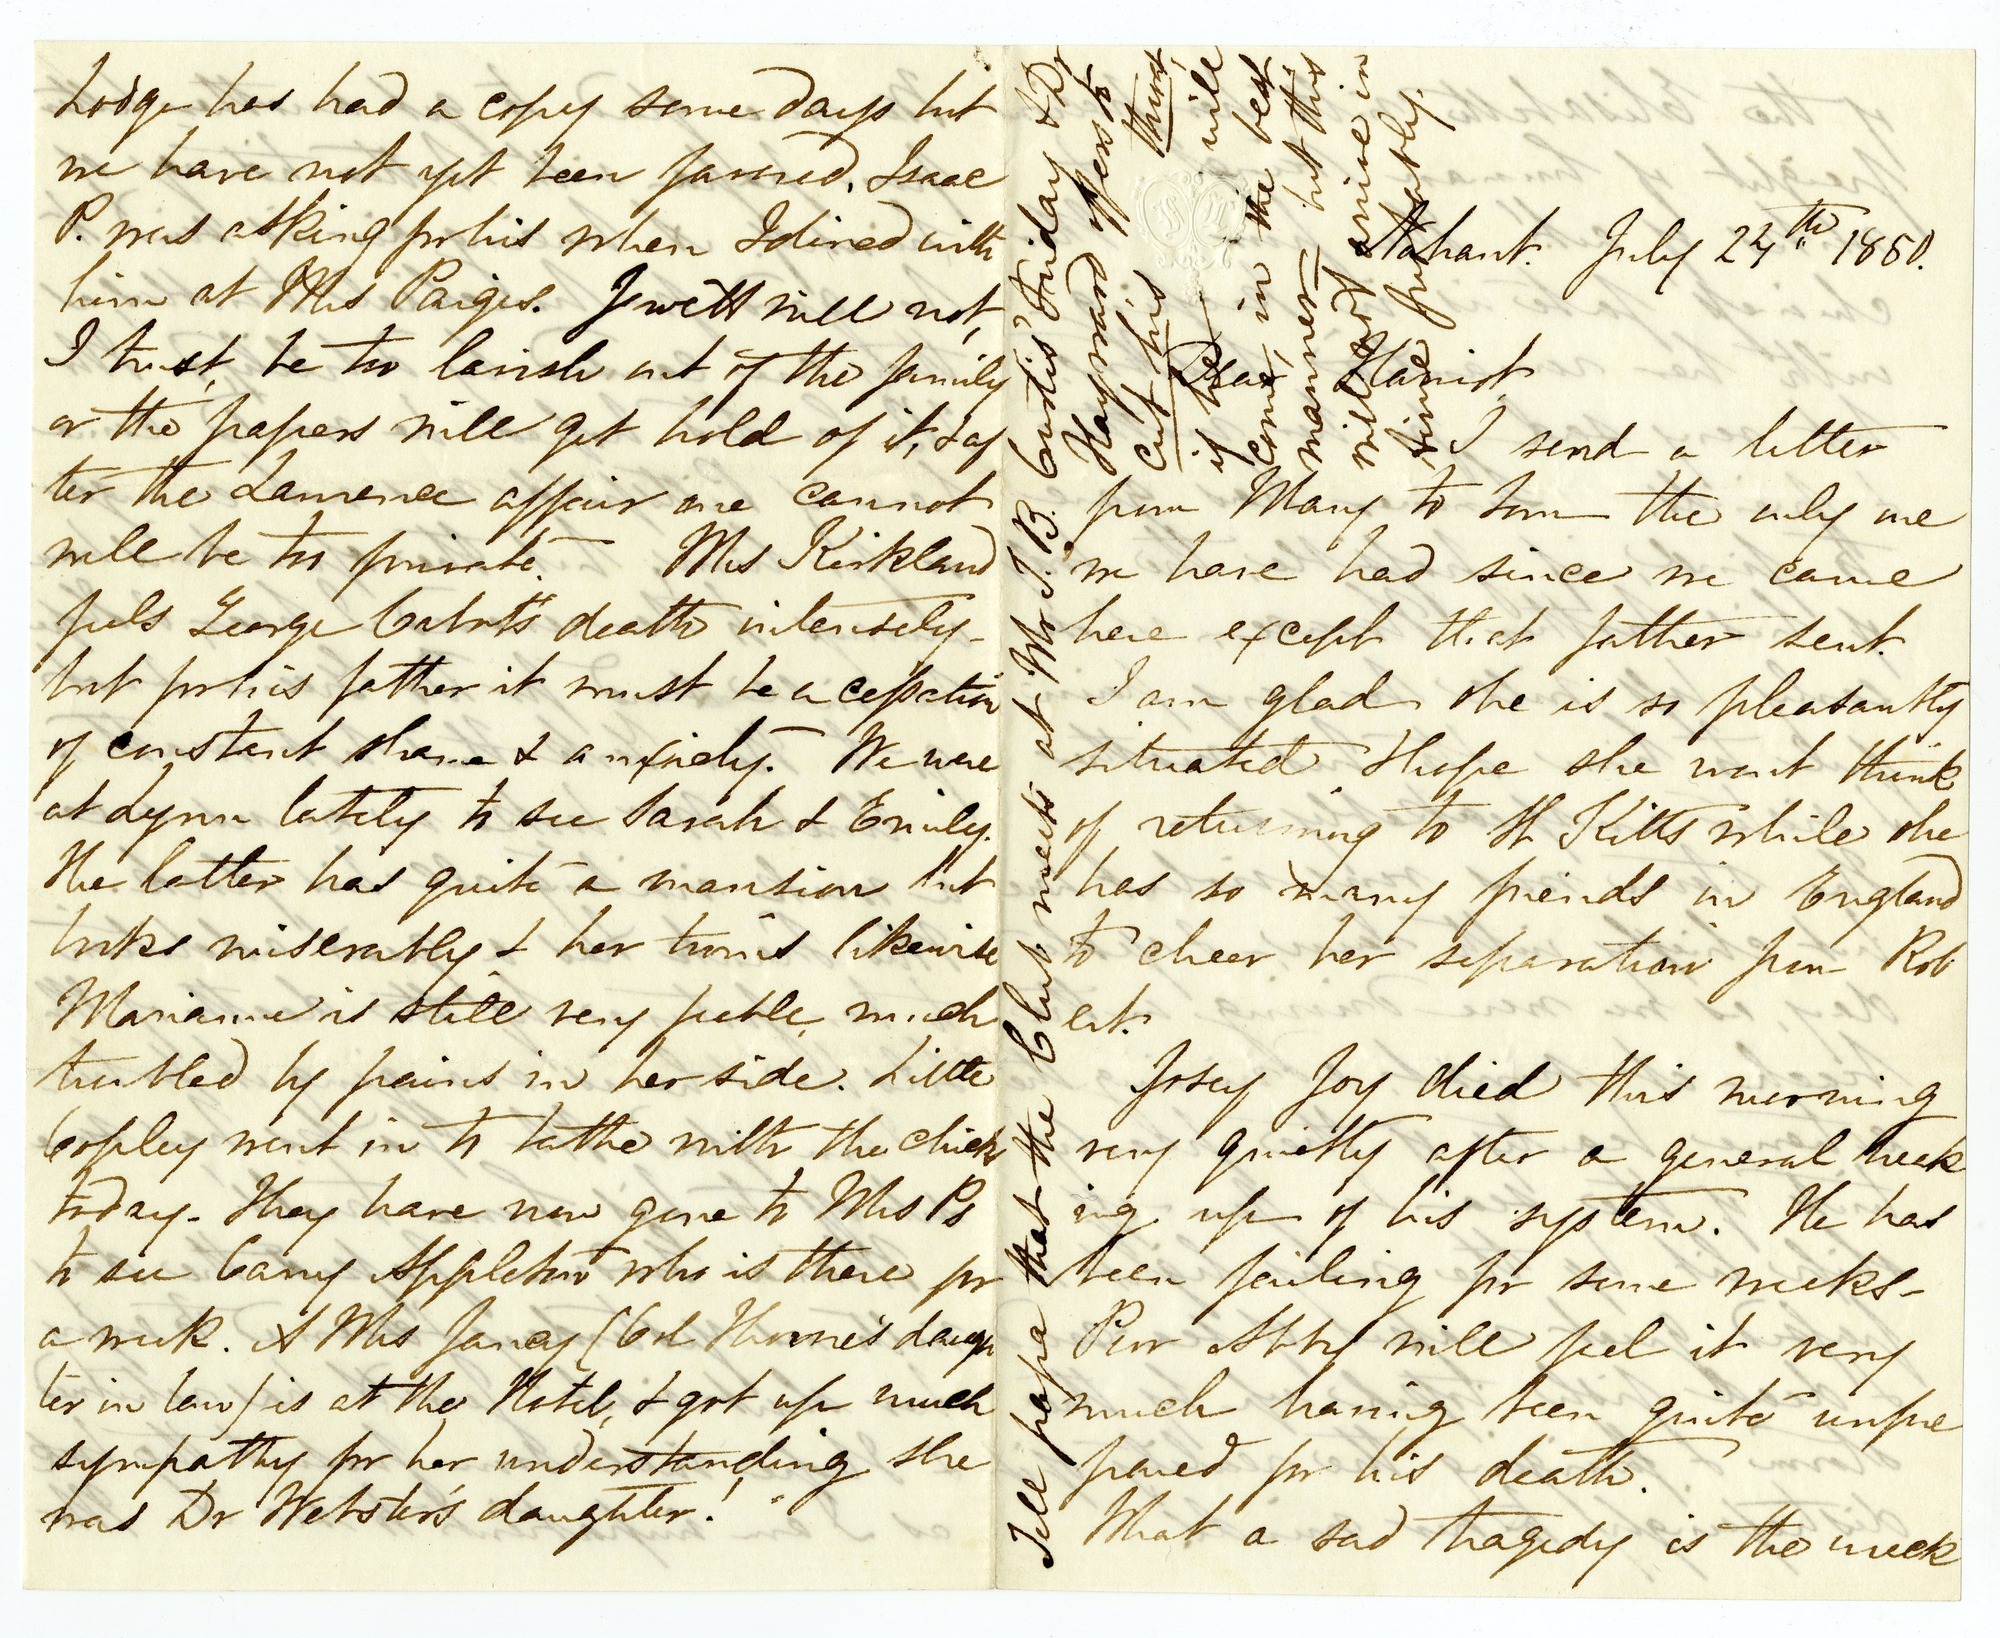 Nahant. July 24th 1850.
Dear Harriot,
I send a letter
from Mary to Tom the only one
we have had since we came
here except that father sent.
I am glad she is so pleasantly
situated & hope she wont think
of returning to St Kitts while she
has so many friends in England
to cheer her separation from Rob
ert.
Josey Joy died this morning
very quietly after a general break
ing up of his system. He has
been failing for some weeks -
Poor Abby will feel it very
much having been quite unpre
pared for his death.
What a sad tragedy is the wreck
Lodge has had a copy some days but
we have not yet been favored. Isaac
P. was asking for his when I dined with
him at Mrs Paiges. Jewett will not,
I trust, be too lavish out of the family
or the papers will get hold of it, & af
ter the Lawrence affair one cannot
well be too private. Mrs Kirkland
feels George Cabot's death intensely -
but for his father it must be a cessation
of constant shame & anxiety. We were
at Lynn lately to see Sarah & Emily.
The latter has quite a mansion but
looks miserably & her twins likewise
Marianne is still very feeble, much
troubled by pains in her side. Little
Copley went in to bathe with the chicks
today. They have now gone to Mrs P's
to see Carry Appleton who is there for
a week. A Mrs Jancy (Col Thorne's daugh
ter in law) is at the Hotel, & got up much
sympathy for her understanding she
was Dr Webster's daughter!
Tell papa that the Club meets at Mr T. B. Curtis' Friday & Dr
Hayward offers to
cut his throat
if he will
come, in the best
manner - but this
will not arrive in
time probably.